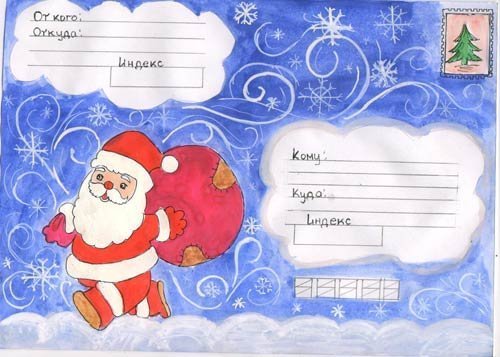 От кого:
Откуда:
Индекс
Кому:
Куда:
Индекс